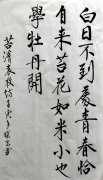 白日不到處青春恰
自来苔花如米小也
學牡丹開
苔清袁枚詩